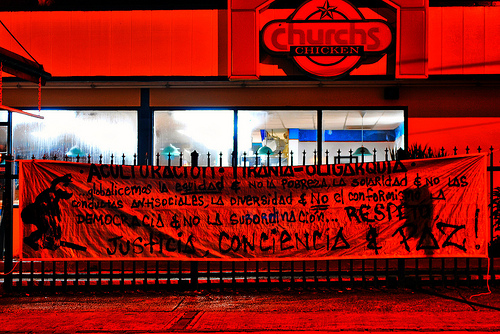 Churchs
CHICKEN
ACULTURACIÓN · TIRANÍA · OLIGARQUÍA
...globalicemos la equidad & no la pobreza La solaridad & no las
conductas antisociales, la diversidad & No el conformismo La
Democracia & no la subordinación... RESPETO
JUSTICIA, CONCIENCIA & PAZ!